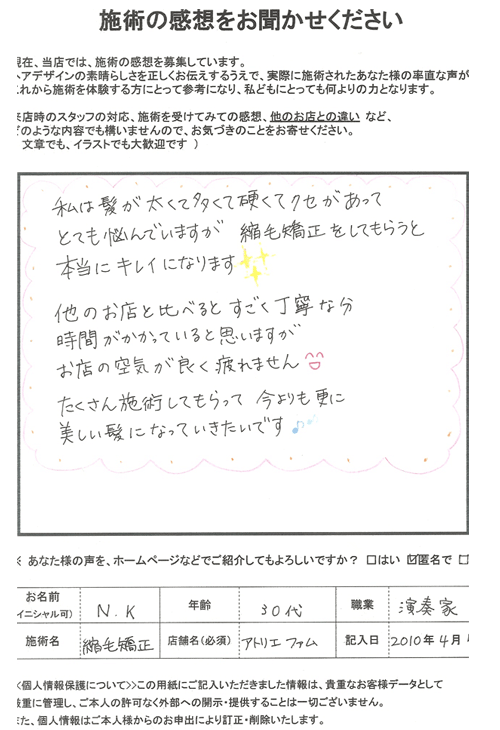 施術の感想をお聞かせください
現在、当店では、施術の感想を募集しています。
ヘアデザインの素晴らしさを正しくお伝えするうえで、実際に施術されたあなた様の率直な声が
これから施術を体験する方にとって参考になり、私どもにとっても何よりの力となります。
来店時のスタッフの対応、施術を受けてみての感想、他のお店との違い など、
どのような内容でも構いませんので、お気づきのことをお寄せください。
文章でも、イラストでも大歓迎です )
私は髪が太くて多くて硬くてクセがあって
とても悩んでいますが 縮毛矯正をしてもらうと
本当にキレイになります
他のお店と比べると すごく丁寧な分
時間がかかっていると思いますが
お店の空気が良く疲れません
たくさん施術してもらって 今よりも更に
美しい髪になっていきたいです♪
あなた様の声を、ホームページなどでご紹介してもよろしいですか? □はい ☑匿名で □
お名前 (イニシャル可) N.K 年齢 30代 職業 演奏家
施術名 縮毛矯正 店舗名(必須) アトリエ ファム 記入日 2010年4月
<<個人情報保護について>>この用紙にご記入いただきました情報は、貴重なお客様データとして
厳重に管理し、ご本人の許可なく外部への開示・提供することは一切ございません。
また、個人情報はご本人様からのお申出により訂正・削除いたします。